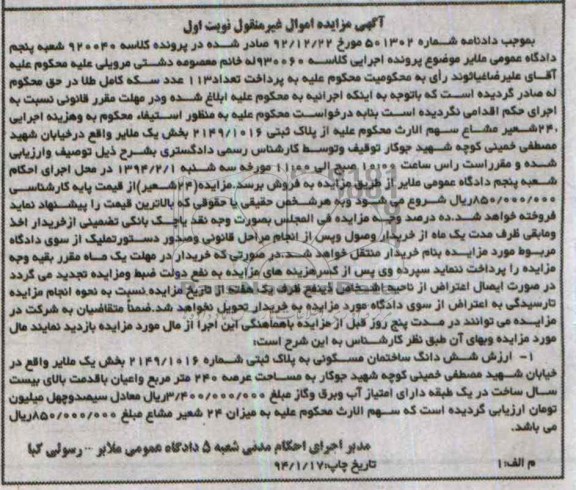 آگهی مزایده اموال غیرمنقول نوبت اول
بموجب دادنامه شماره ۵۰۱۳۰۲ مورخ ۹۲/۱۲/۲۲ صادر شده در پرونده کلاسه ۹۲۰۰۴۰ شعبه پنجم
دادگاه عمومی ملایر موضوع پرونده اجرایی کلاسه ۹۳۰۰۶۰له خانم معصومه دشتی مرویلی علیه محکوم علیه
آقای علیرضاغیاثوند رأی به محکومیت محکوم علیه به پرداخت تعداد۱۱۳ عدد سکه کامل طلا در حق محکوم
له صادر گردیده است که باتوجه به اینکه اجرائیه به محکوم علیه ابلاغ شده ودر مهلت مقرر قانونی نسبت به
اجرای حکم اقدامی نگردیده است بنابه درخواست محکوم علیه به منظور استیفاء محکوم به وهزینه اجرایی
،۲۴شعیر مشاع سهم الارث محکوم علیه از پلاک ثبتی ۲۱۴۹/۱۰۱۶ بخش یک ملایر واقع درخیابان شهید
مصطفی خمینی کوچه شهید جوکار توقیف وتوسط کارشناس رسمی دادگستری بشرح ذیل توصیف وارزیابی
شده و مقرراست راس ساعت ۱۰:۰۰ صبح الی ۱۱:۰۰ مورخه سه شنبه ۱۳۹۴/۲/۱ در محل اجرای احکام
شعبه پنجم دادگاه عمومی ملایر از طریق مزایده به فروش برسد.مزایده(۲۴شعیر)از قیمت پایه کارشناسی
۸۵۰/۰۰۰/۰۰۰ریال شروع می شود وبه هرشخص حقیقی یا حقوقی که بالاترین قیمت را پیشنهاد نماید
فروخته خواهد شد.ده درصد وجه مزایده فی المجلس بصورت وجه نقد یاچک بانکی تضمینی ازخریدار اخذ
ومابقی ظرف مدت یک ماه از خریدار وصول وپس از انجام مراحل قانونی وصدور دستورتملیک از سوی دادگاه
مربوط مورد مزایده بنام خریدار منتقل خواهد شد.در صورتی که خریدار در مهلت یک ماه مقرر بقیه وجه
مزایده را پرداخت ننماید سپرده وی پس از کسرهزینه های مزایده به نفع دولت ضبط ومزایده تجدید می گردد
در صورت ایصال اعتراض از ناحیه اشخاص ذینفع ظرف یک هفته از تاریخ مزایده،نسبت به نحوه انجام مزایده
تارسیدگی به اعتراض از سوی دادگاه مورد مزایده به خریدار تحویل نخواهد شد.ضمناً متقاضیان به شرکت در
مزایده می توانند در مدت پنج روز قبل از مزایده باهماهنگی این اجرا از مال مورد مزایده بازدید نمایند مال
مورد مزایده وبهای آن طبق نظر کارشناس به این شرح است:
۱- ارزش شش دانگ ساختمان مسکونی به پلاک ثبتی شماره ۲۱۴۹/۱۰۱۶ بخش یک ملایر واقع در
خیابان شهید مصطفی خمینی کوچه شهید جوکار به مساحت عرصه ۲۴۰ متر مربع واعیان باقدمت بالای بیست
سال ساخت در یک طبقه دارای امتیاز آب وبرق وگاز مبلغ ۳/۴۰۰/۰۰۰/۰۰۰ریال معادل سیصدوچهل میلیون
تومان ارزیابی گردیده است که سهم الارث محکوم علیه به میزان ۲۴ شعیر مشاع مبلغ ۸۵۰/۰۰۰/۰۰۰ریال
می باشد.
مدیر اجرای احکام مدنی شعبه ۵ دادگاه عمومی ملایر - رسولی کیا
م الف:۱ تاریخ چاپ:۹۴/۱/۱۷